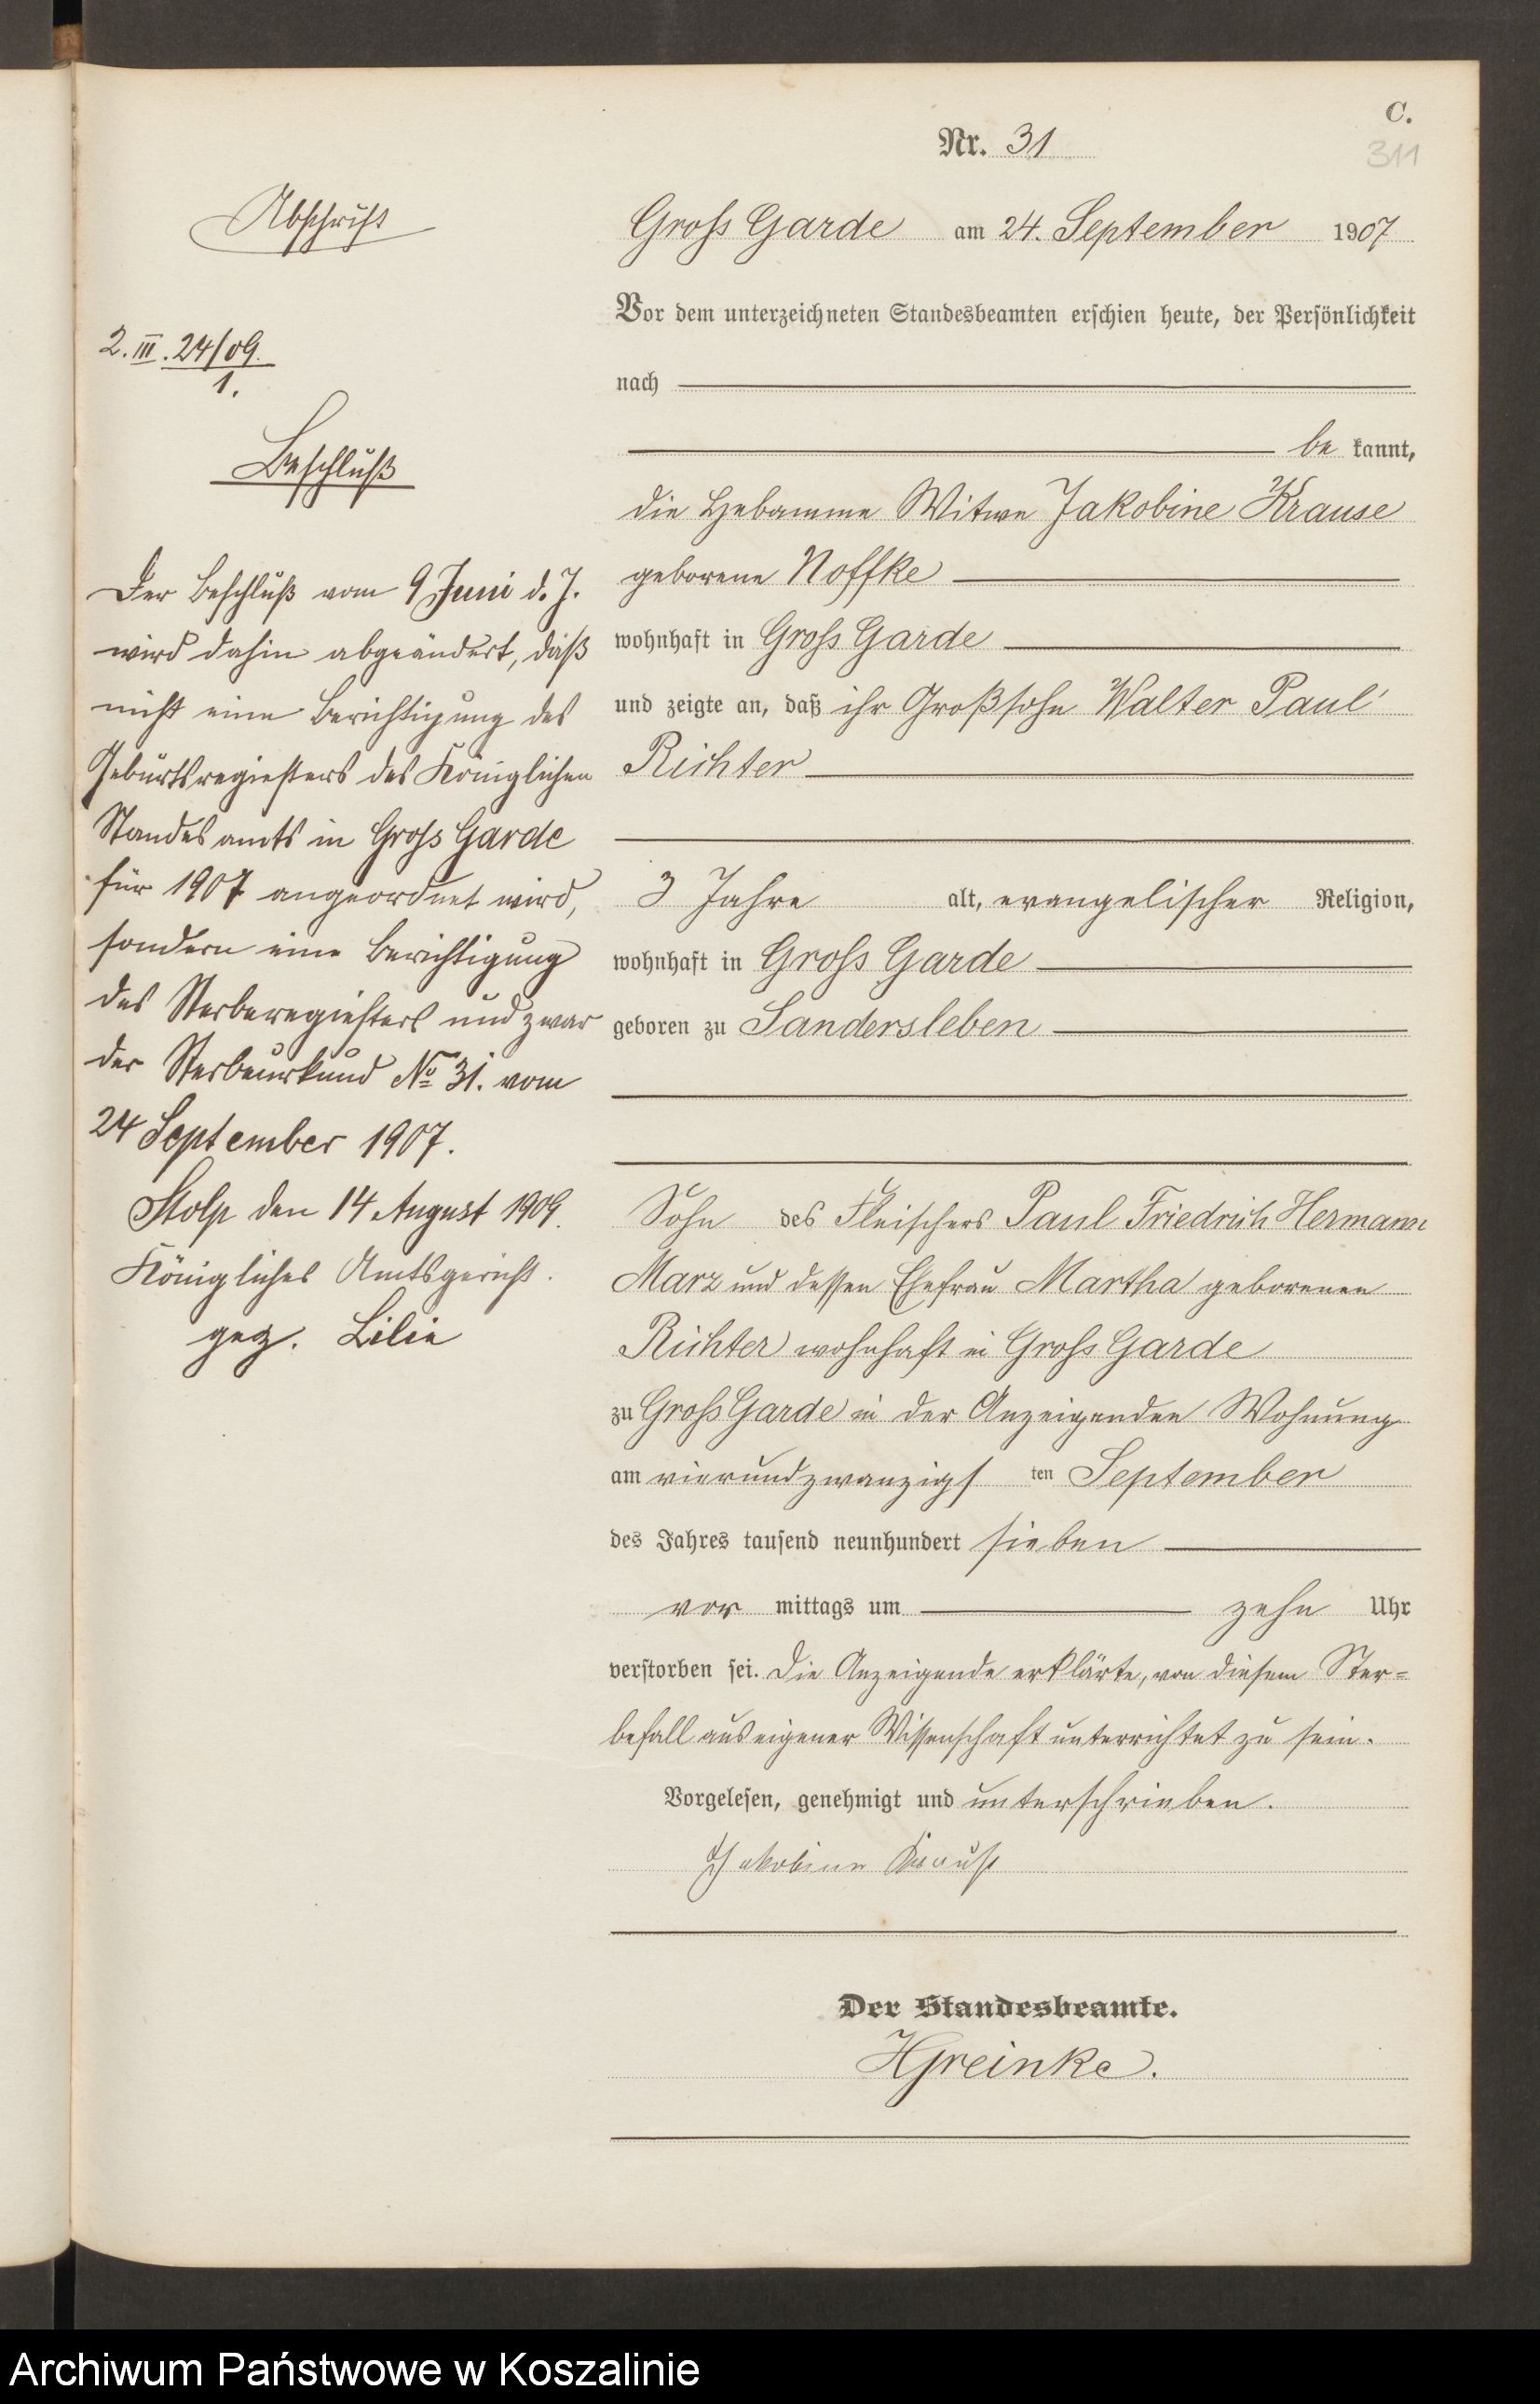 C.
Nr. 31
311
Abschrift
2. III. 24/09.
1.
Beschluß
Der Beschluß vom 9 Juni d. J.
wird dahin abgeändert, daß
nicht eine Berichtigung des
Geburtsregiesters des Königlichen
Standesamts in Gross Garde
für 1907 angeordnet wird,
sondern eine Berichtigung
des Sterberegiesters und zwar
der Sterbeurkund No 31. vom
24 September 1907.
Stolp den 14 August 1909.
Königliches Amtsgericht.
gez. Lilie
Gross Garde am 24. September 1907
Vor dem unterzeichneten Standesbeamten erschien heute, der Persönlichkeit
nach
be kannt,
die Hebamme Witwe Jakobine Krause
geborene Noffke
wohnhaft in Gross Garde
und zeigte an, daß ihr Großsohn Walter Paul
Richter
3 Jahre alt, evangelischer Religion,
wohnhaft in Gross Garde
geboren zu Sandersleben
Sohn des Fleischers Paul Friedrich Hermann
Marz und dessen Ehefrau Martha geborenen
Richter wohnhaft in Gross Garde
zu Gross Garde in der Anzeigenden Wohnung
am vierundzwanzigs ten September
des Jahres tausend neunhundert sieben
vor mittags um zehn Uhr
verstorben sei. Die Anzeigende erklärte, von diesem Ster-
befall aus eigener Wissenschaft unterrichtet zu sein.
Vorgelesen, genehmigt und unterschrieben.
Jakobine Krause
Der Standesbeamte.
HGreinke.
Archiwum Państwowe w Koszalinie